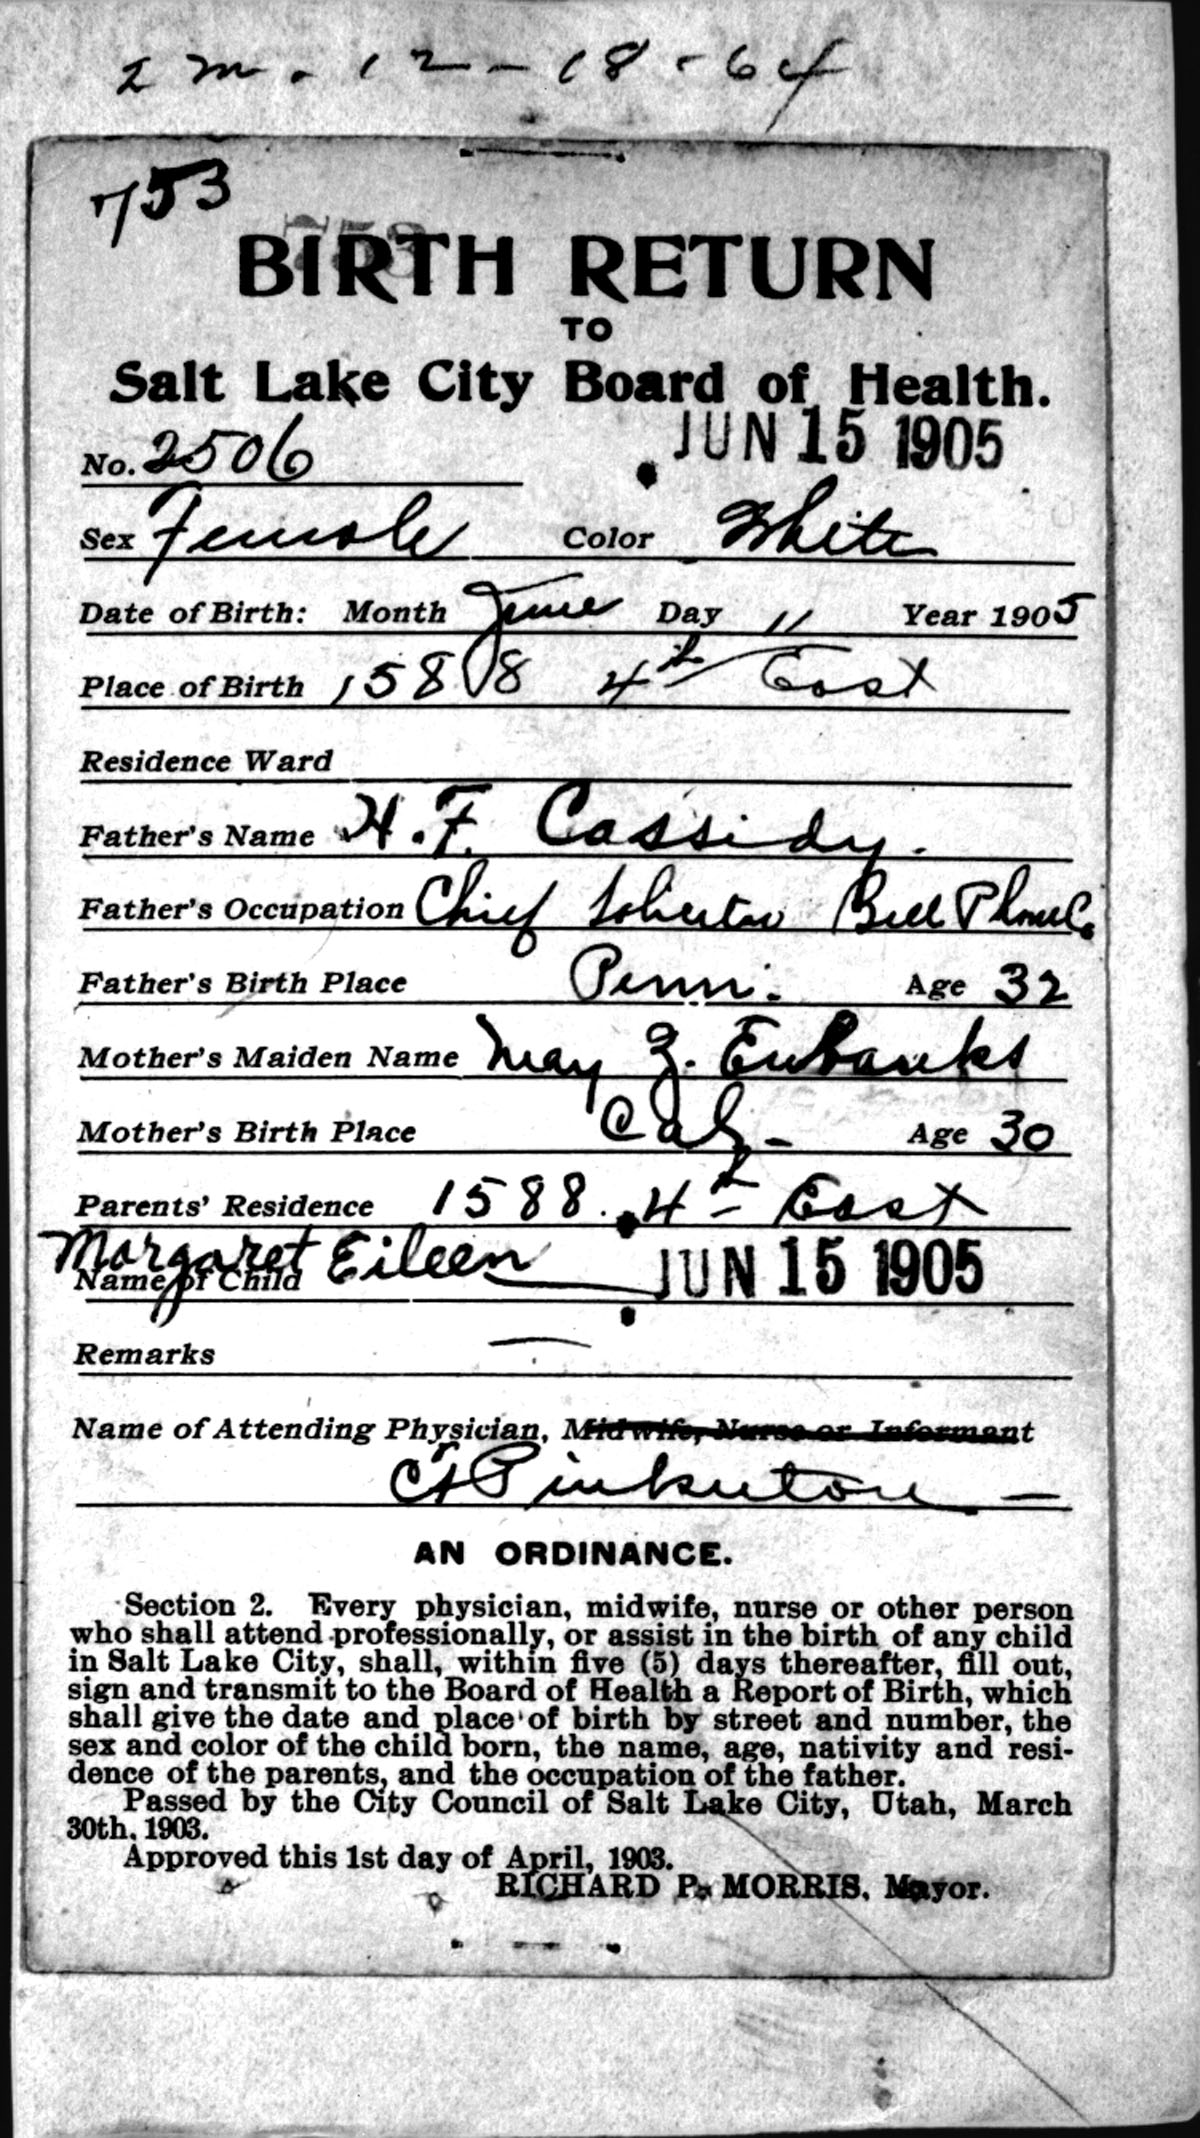 2 m. 12-18-64
753
753
BIRTH RETURN
TO
Salt Lake City Board of Health.
JUN 15 1905
No. 2506
Sex Female Color White
Date of Birth: Month June Day 11 Year 1905
Place of Birth 1588 4th East
Residence Ward
Father's Name H. F. Cassidy.
Father's Occupation Chief Bell Phone Co.
Father's Birth Place Penn. Age 32
Mother's Maiden Name May Z. Eubanks
Mother's Birth Place Cal. Age 30
Parents' Residence 1588. 4th East
Margaret Eileen
Name of Child JUN 15 1905
Remarks —
Name of Attending Physician, Midwife, Nurse or Informant
Pinkerton —
AN ORDINANCE.
Section 2. Every physician, midwife, nurse or other person
who shall attend professionally, or assist in the birth of any child
in Salt Lake City, shall, within five (5) days thereafter, fill out,
sign and transmit to the Board of Health a Report of Birth, which
shall give the date and place of birth by street and number, the
sex and color of the child born, the name, age, nativity and resi-
dence of the parents, and the occupation of the father.
Passed by the City Council of Salt Lake City, Utah, March
30th, 1903.
Approved this 1st day of April, 1903.
RICHARD P. MORRIS, Mayor.